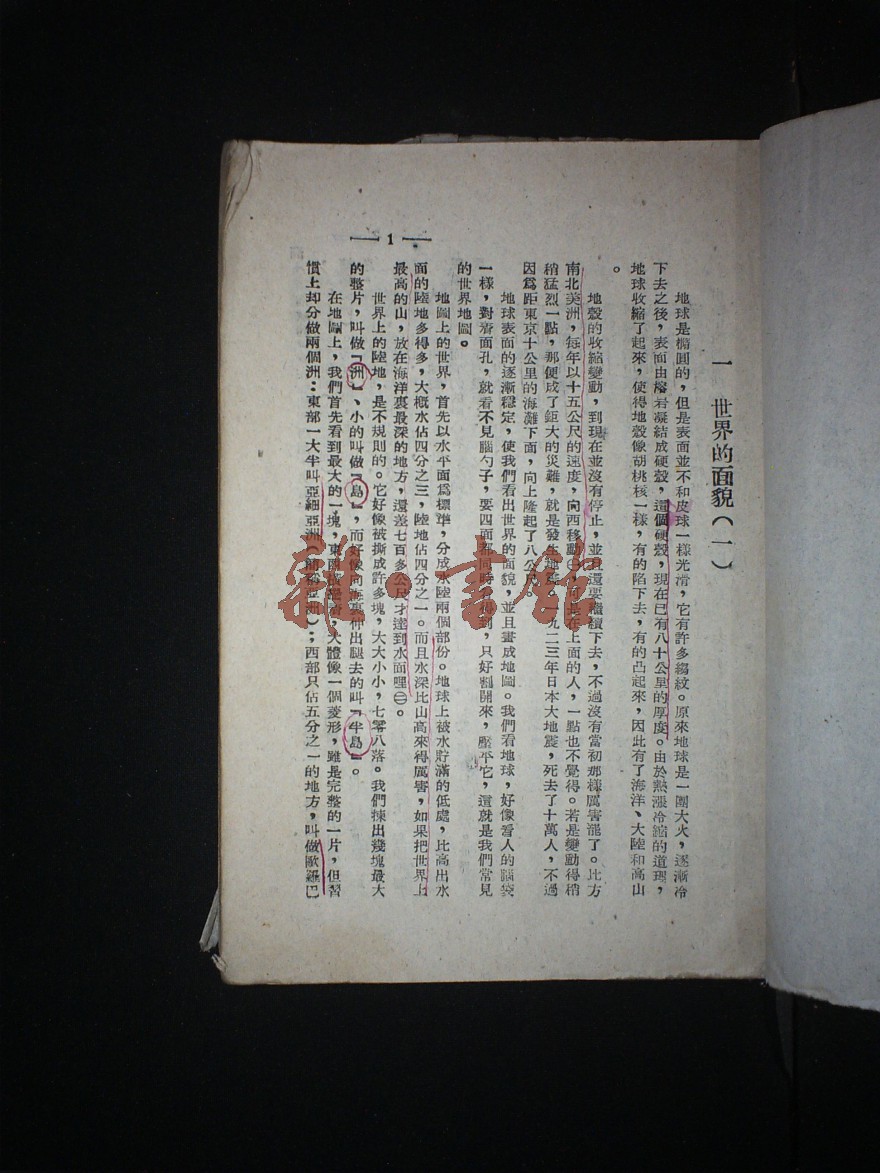 一 世界的面貌（一）
地球是橢圓的，但是表面並不和皮球一樣光滑，它有許多縐紋。原來地球是一團大火，逐漸冷
下去之後，表面由熔岩凝結成硬殼，這個硬殼，現在已有八十公里的厚度。由於熱漲冷縮的道理，
地球收縮了起來，使得地殼像胡桃核一樣，有的陷下去，有的凸起來，因此有了海洋、大陸和高山
。
地殼的收縮變動，到現在並沒有停止，並且還要繼續下去，不過沒有當初那樣厲害罷了。比方
南北美洲，每年以十五公尺的速度，向西移動㊀，可是在上面的人，一點也不覺得。若是變動得稍
稍猛烈一點，那便成了鉅大的災難，就是發生地震。一九二三年日本大地震，死去了十萬人，不過
因爲距東京十公里的海灘下面，向上隆起了八公尺。
地球表面的逐漸穩定，使我們看出世界的面貌，並且畫成地圖。我們看地球，好像看人的腦袋
一樣，對着面孔，就看不見腦勺子，要四面都同時看得到，只好割開來，壓平它，這就是我們常見
的世界地圖。
地圖上的世界，首先以水平面爲標準，分成水陸兩個部份。地球上被水貯滿的低處，比高出水
面的陸地多得多，大概水佔四分之三，陸地佔四分之一。而且水深比山高來得厲害，如果把世界上
最高的山，放在海洋裏最深的地方，還差七百多公尺才達到水面哩㊁。
世界上的陸地，是不規則的。它好像被撕成許多塊，大大小小，七零八落。我們揀出幾塊最大
的整片，叫做『洲』、小的叫做『島』，而好像向海裏伸出腿去的叫『半島』。
在地圖上，我們首先看到最大的一塊，東西橫亙着，大體像一個菱形，雖是完整的一片，但習
慣上却分做兩個洲：東部一大半叫亞細亞洲（簡稱亞洲）；西部只佔五分之一的地方，叫做歐羅巴
— 1 —
雜·書館